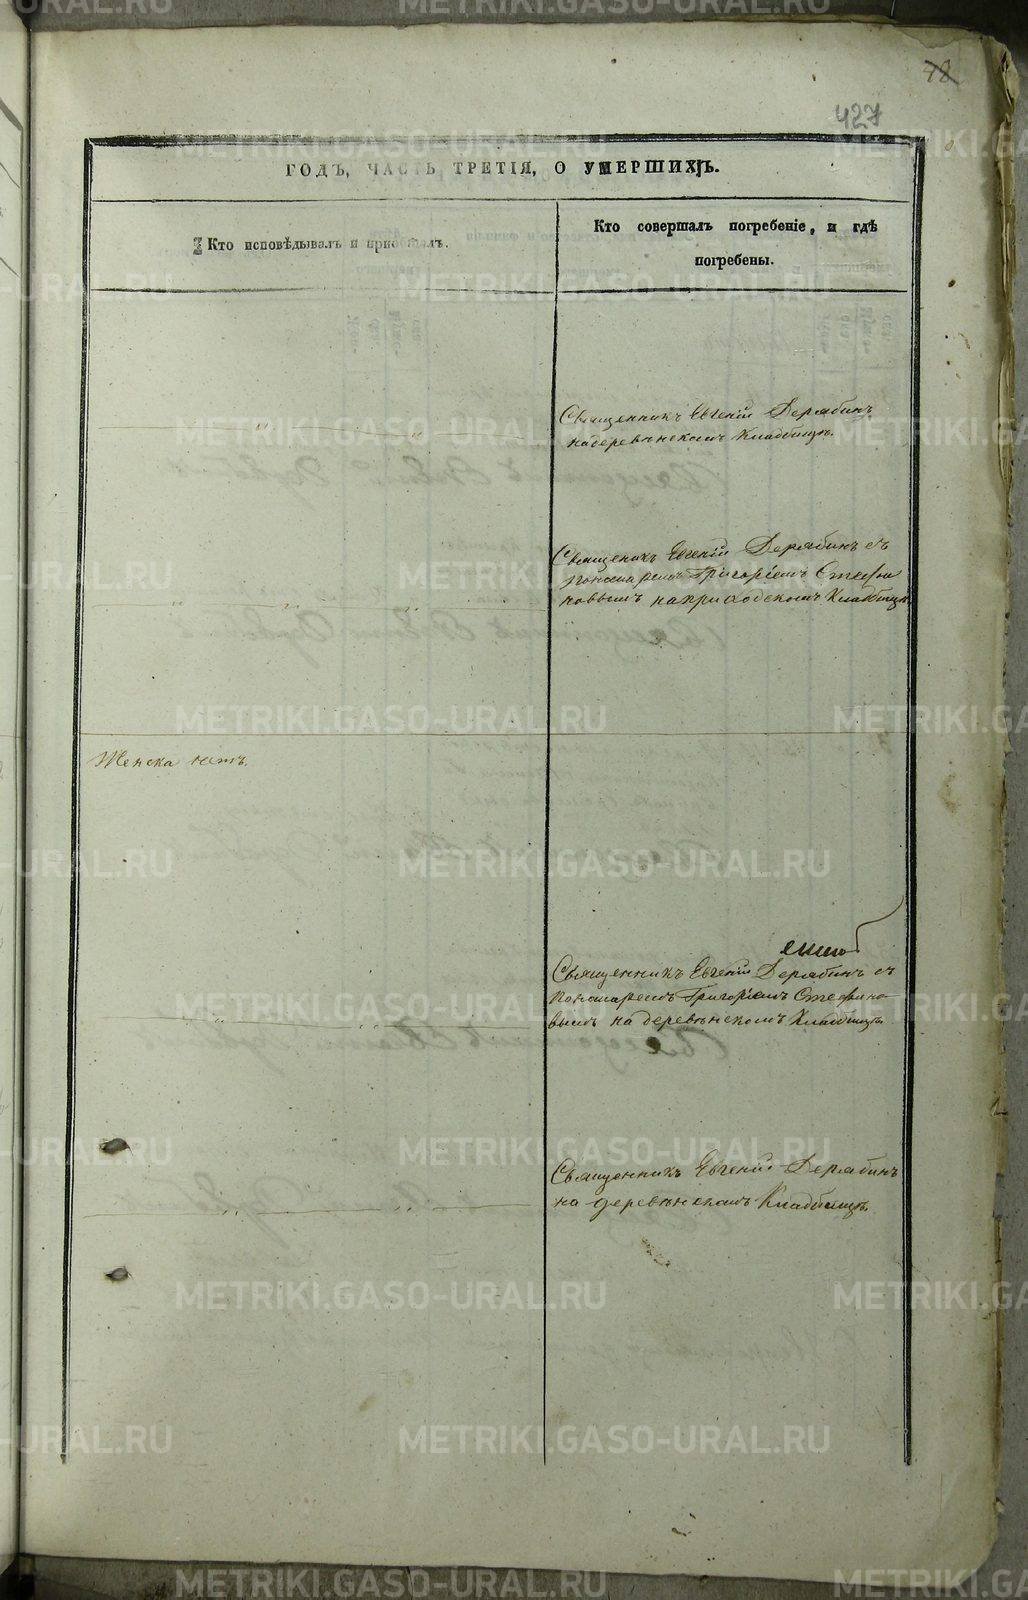 48
427
ГОДЪ, ЧАСТЬ ТРЕТІЯ, О УМЕРШИХЪ.
Кто исповѣдывалъ и пріобщалъ.
Кто совершалъ погребеніе, и гдѣ
погребены.
Священникъ Евгеній Дерябинъ
на деревѣнскомъ Кладбищѣ.
Священикъ Евгеній Дерябинъ съ
пономаремъ Григоріемъ Стефа
новымъ на приходскомъ Кладбищѣ.
Женска нѣтъ.
Священникъ Евгеній Дерябинъ съ
пономаремъ Григоріемъ Стефано
вымъ на деревѣнскомъ Кладбищѣ.
Священникъ Евгеній Дерябинъ
на деревѣнскомъ Кладбищѣ.
METRIKI.GASO-URAL.RU